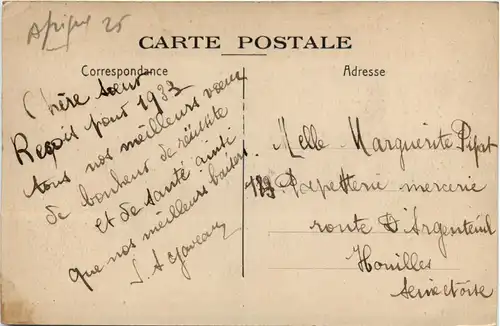 Afrique 25
CARTE POSTALE
Correspondance
Adresse
Chère sœur
Reçois pour 1933
tous nos meilleurs vœux
de bonheur de réussite
et de santé ainsi
que nos meilleurs baisers
Melle Marguerite
mercerie
route D'Argenteuil
Houilles
Seine et oise